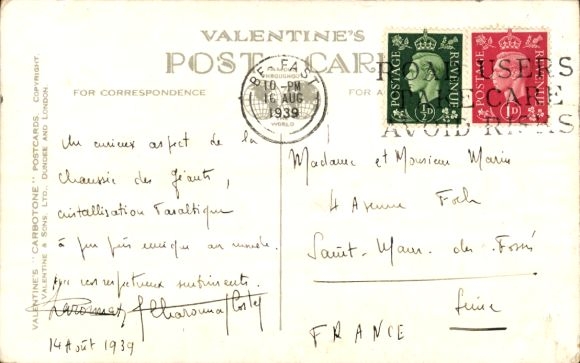 VALENTINE'S
POST CARD
FOR CORRESPONDENCE
BELFAST
10-PM
16 AUG
1939
WORLD
ROAD USERS
TAKE CARE
AVOID RISKS
POSTAGE REVENUE
½D
POSTAGE REVENUE
1D
VALENTINE'S "CARBOTONE" POSTCARDS. COPYRIGHT.
VALENTINE & SONS, LTD., DUNDEE AND LONDON.
Un curieux aspect de la
Chaussée des Géants,
cristallisation basaltique
à peu près unique au monde.
respectueux sentiments.
14 Août 1939
Madame et Monsieur Marin
4 Avenue Foch
Saint-Maur-des-Fossés
Seine
FRANCE